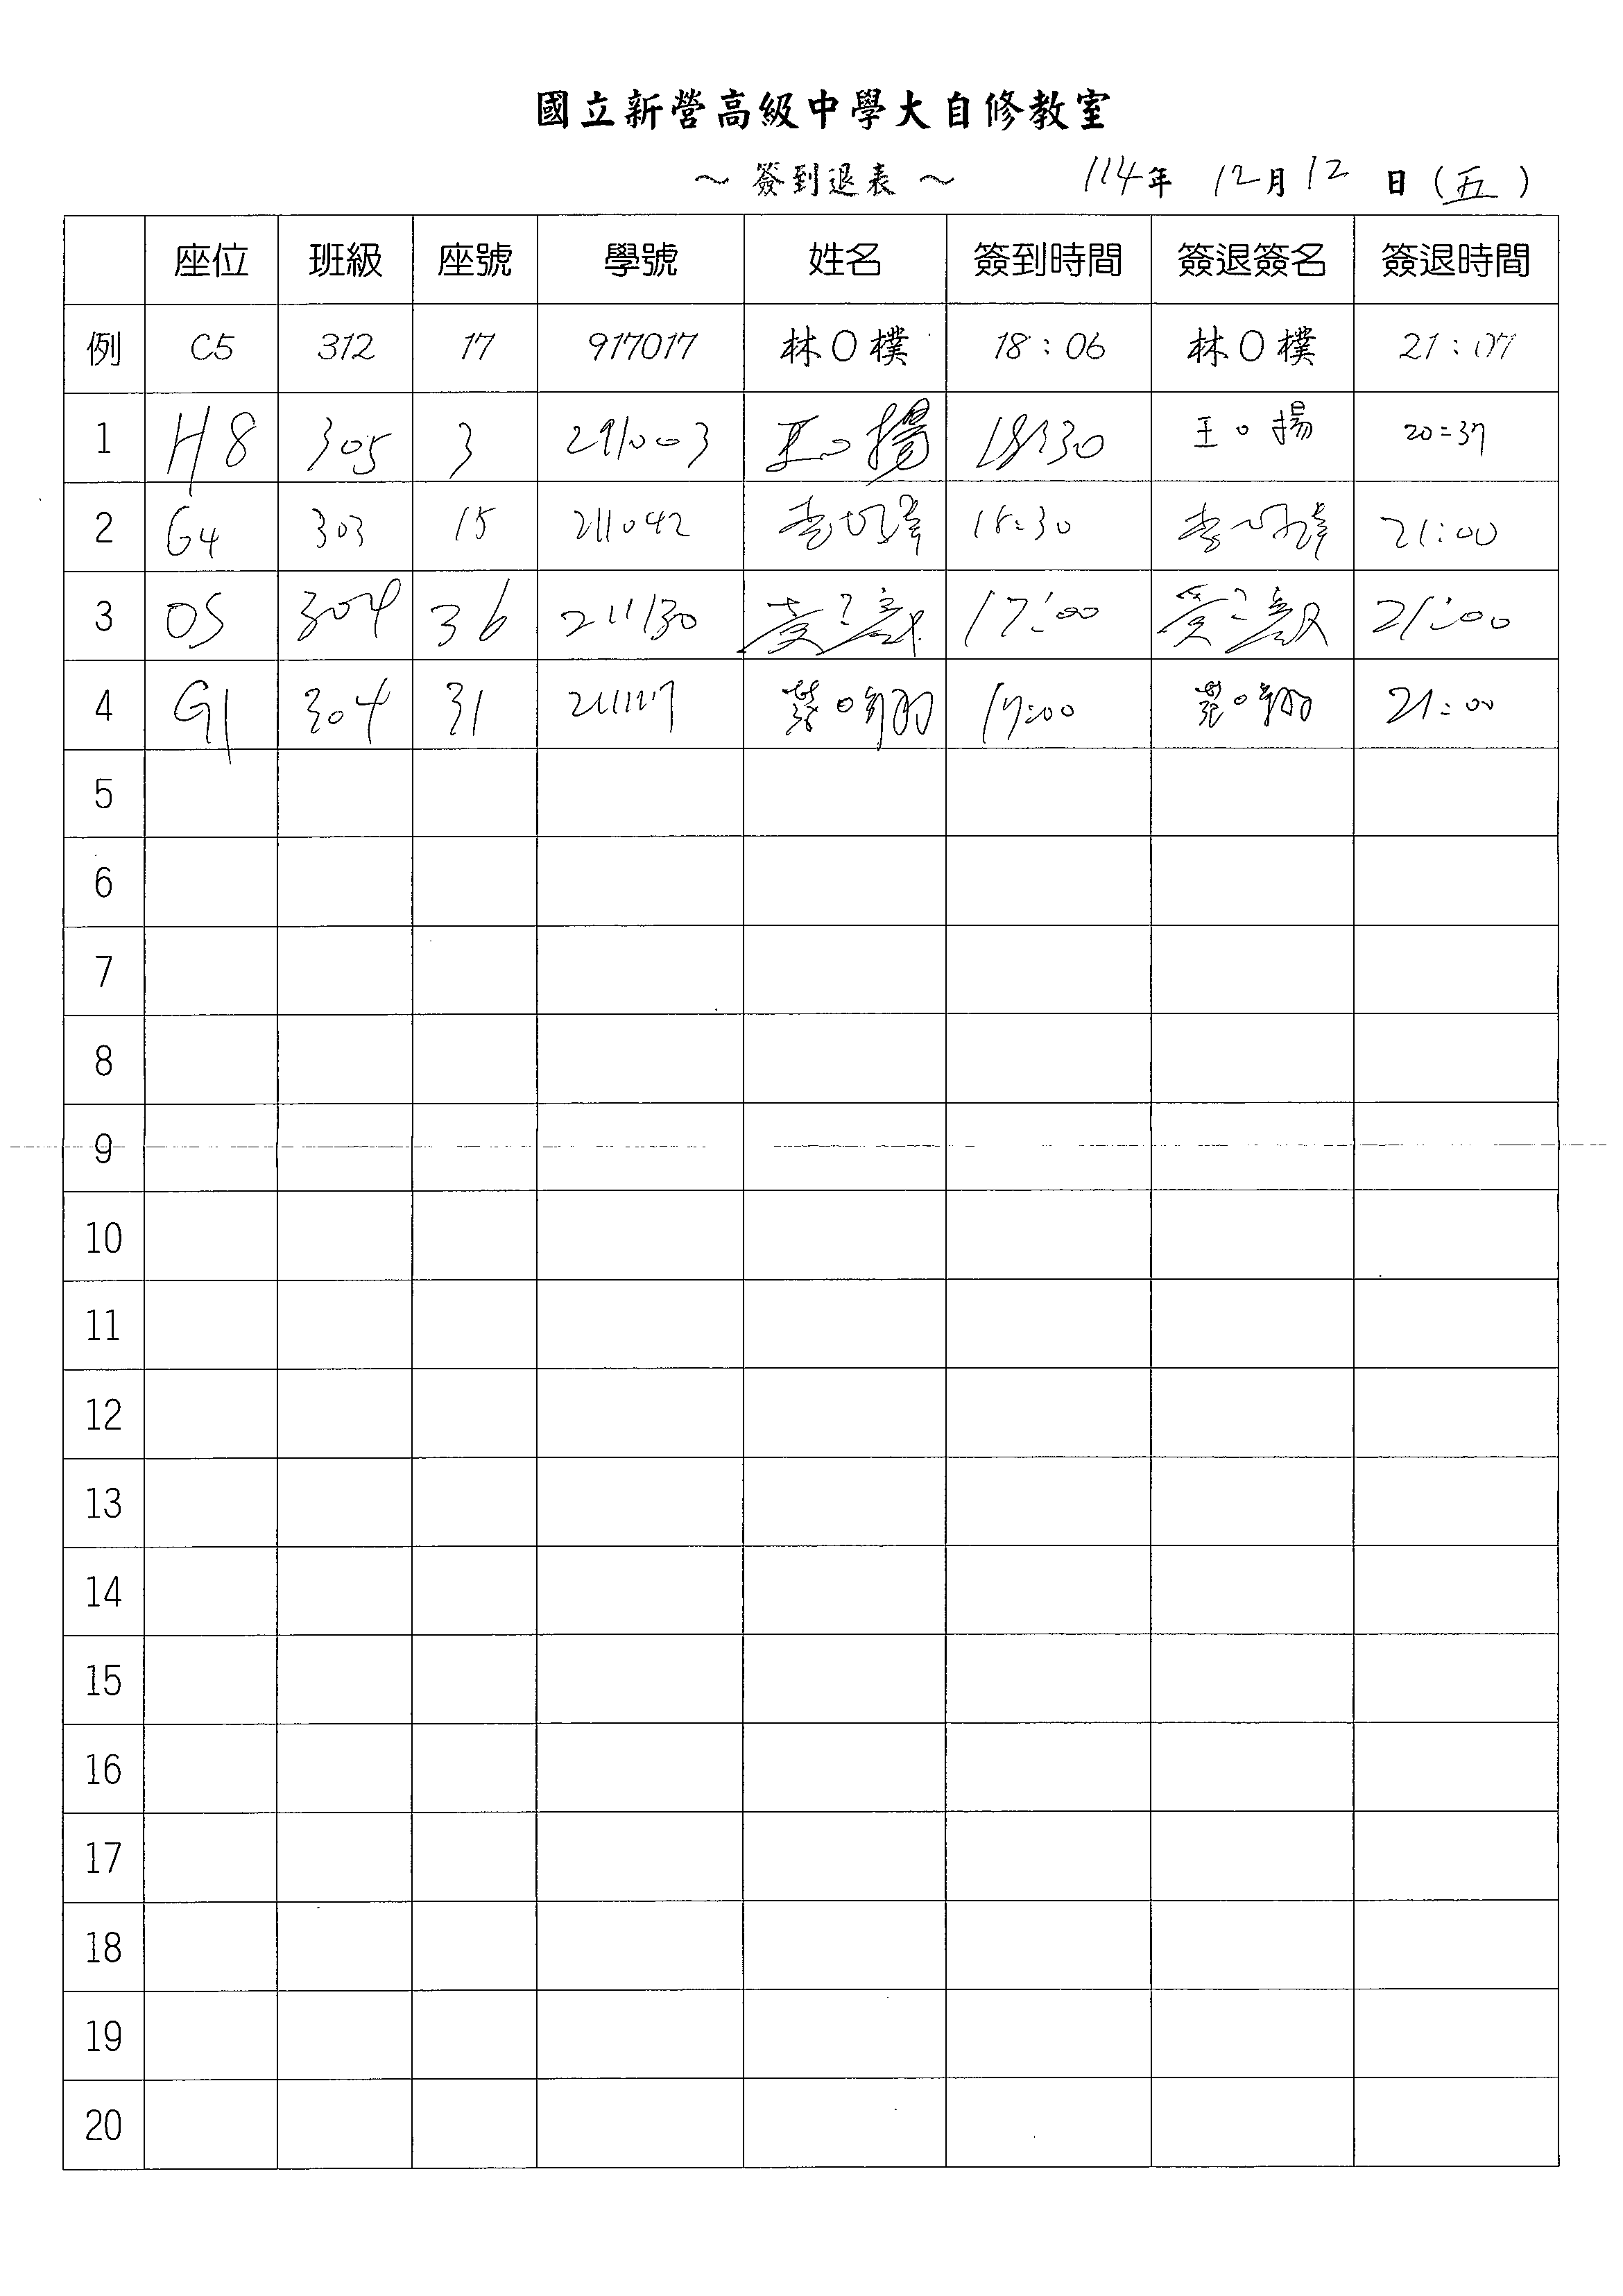 國立新營高級中學大自修教室
～ 簽到退表 ～ 114年 12月12日(五)
座位 班級 座號 學號 姓名 簽到時間 簽退簽名 簽退時間
例 C5 312 17 917017 林O樸 18:06 林O樸 21:07
1 H8 305 3 291003 王O揚 18:30 王O揚 20:37
2 G4 303 15 211042 李 18:30 李 21:00
3 O5 304 36 211130 17:00 21:00
4 G1 304 31 211117 翔 17:00 翔 21:00
5
6
7
8
9
10
11
12
13
14
15
16
17
18
19
20